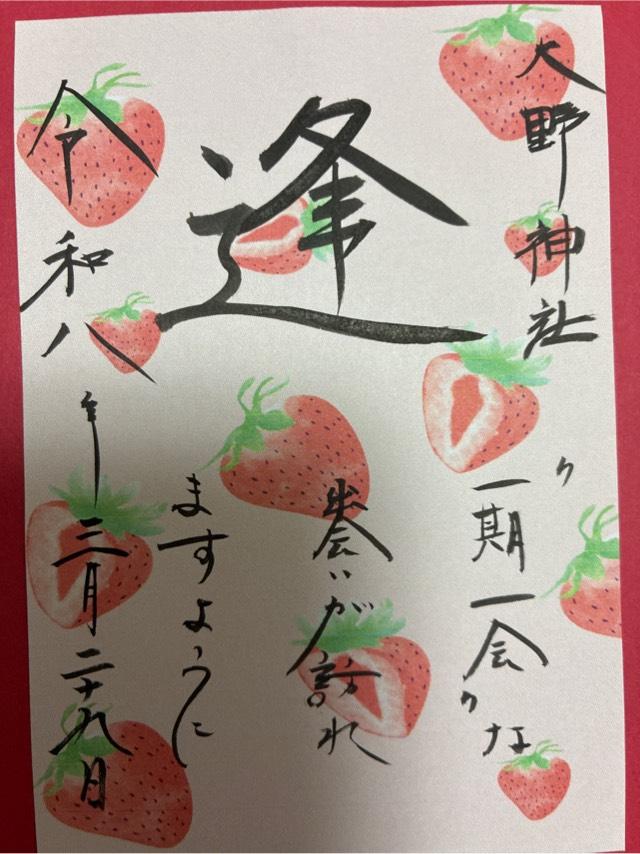 大野神社
逢
"一期一会"な
出会いが訪れ
ますように
令和八年三月二十九日